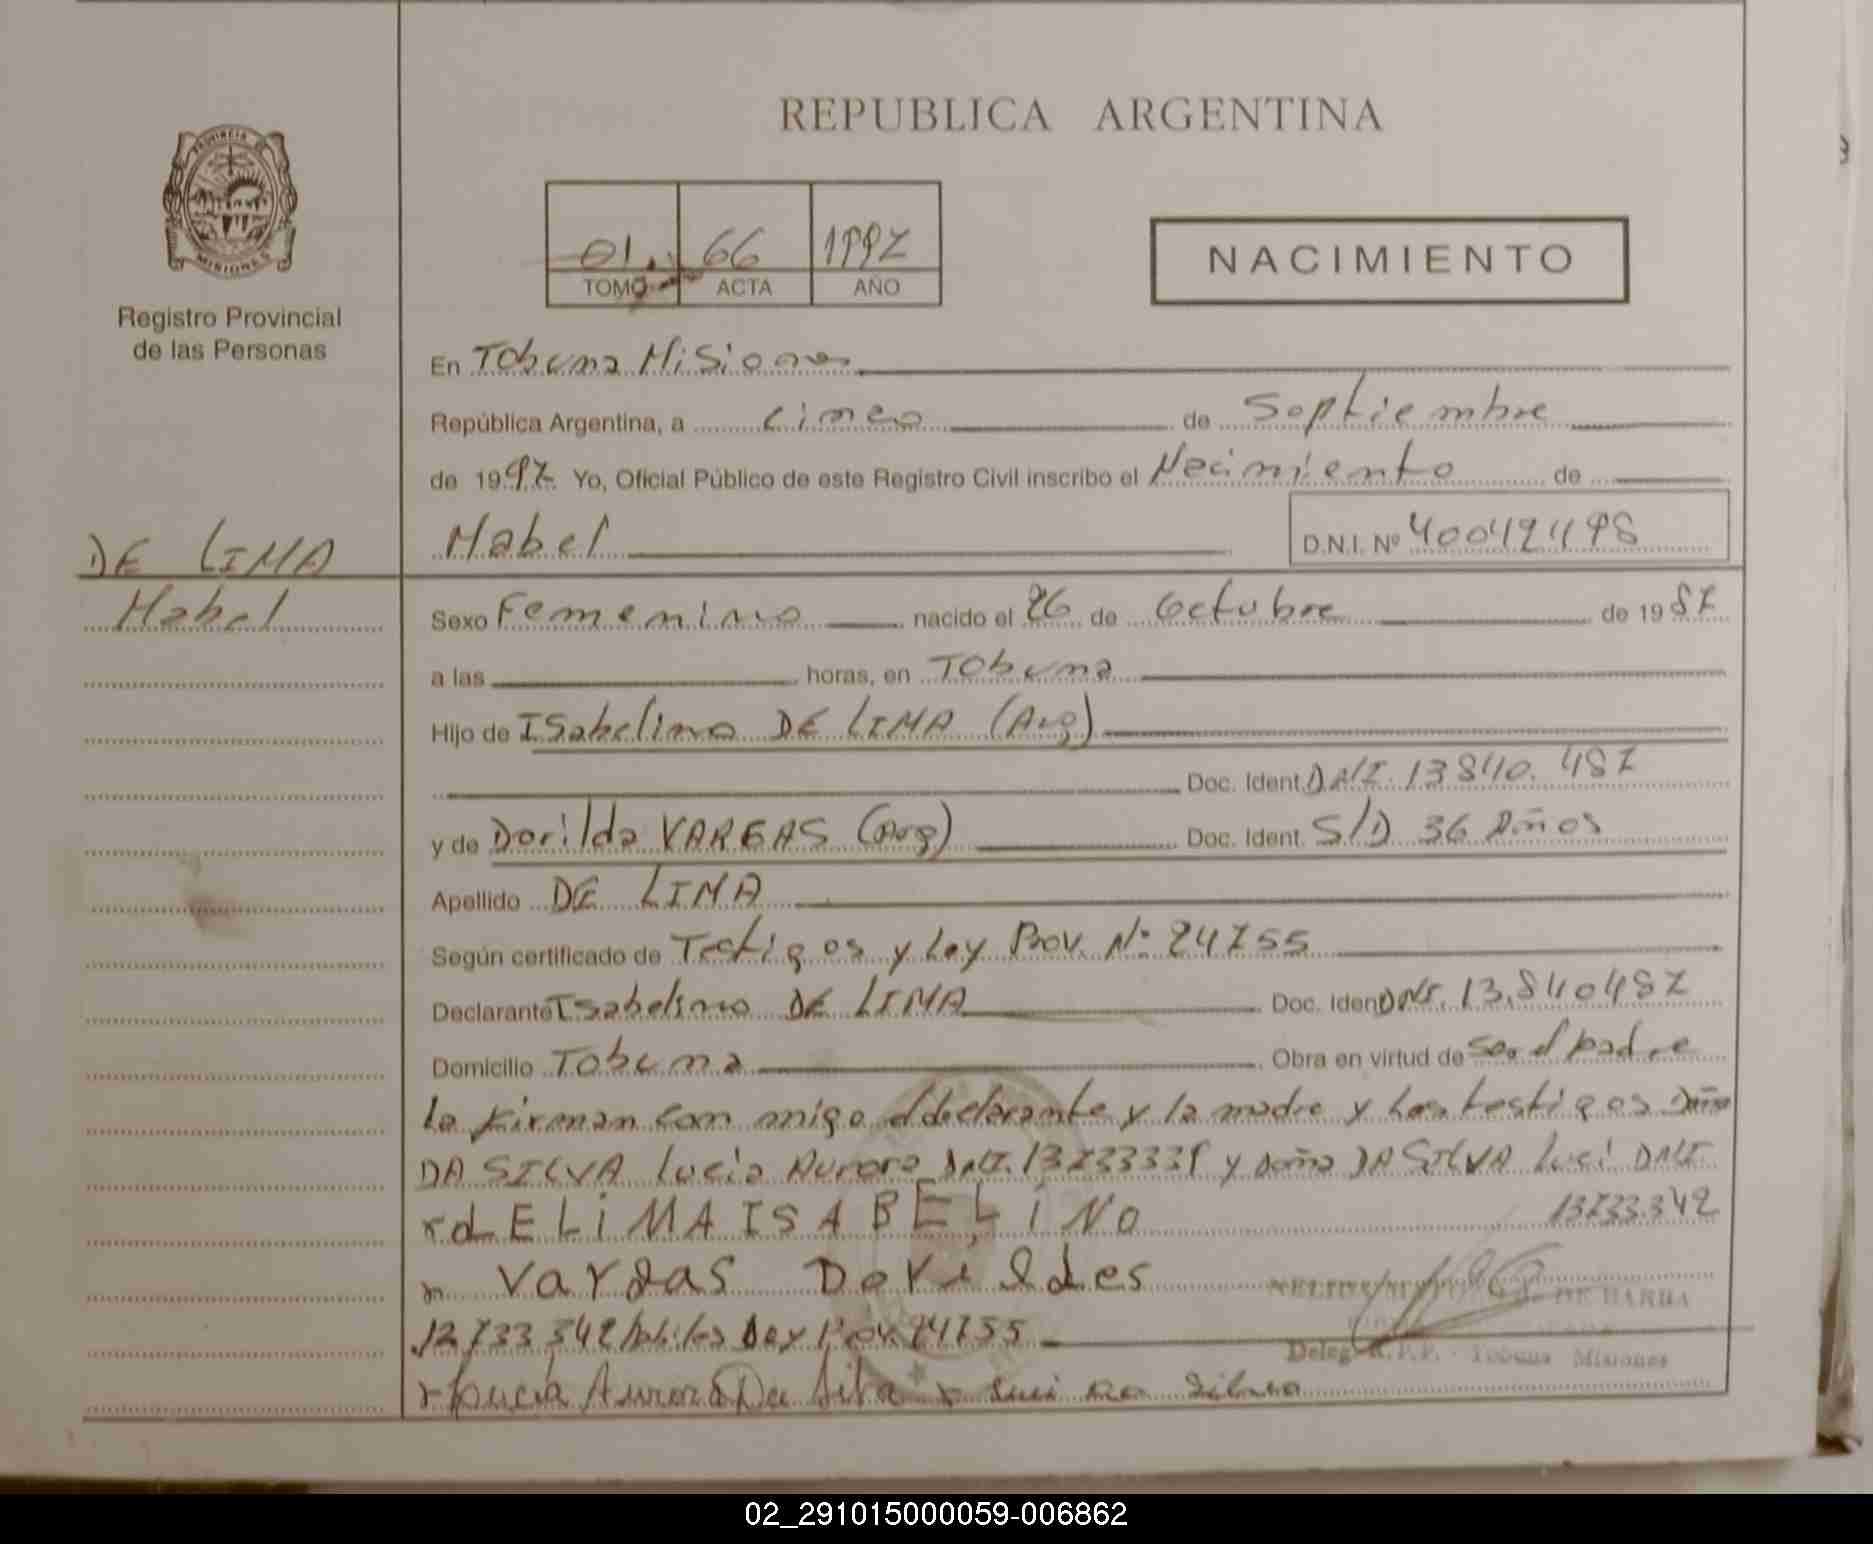 REPUBLICA ARGENTINA
PROVINCIA DE
MISIONES
Registro Provincial
de las Personas
01. 66 1997
TOMO ACTA AÑO
NACIMIENTO
En Tobuna Misiones
República Argentina, a cinco de Septiembre
de 1997 Yo, Oficial Público de este Registro Civil inscribo el Nacimiento de
Mabel D.N.I. Nº 40042498
DE LIMA
Mabel
Sexo Femenino nacido el 26 de Octubre de 1987
a las horas, en Tobuna
Hijo de Isabelino DE LIMA (Arg)
Doc. Ident. DNI. 13840.487
y de Dorilda VARGAS (Arg) Doc. Ident. S/D 36 Años
Apellido DE LIMA
Según certificado de Testigos y Ley Prov. Nº 24755
Declarante Isabelino DE LIMA Doc. Iden DNI. 13.840487
Domicilio Tobuna Obra en virtud de ser el padre
La firman con migo el declarante y la madre y Los testigos Doña
DA SILVA Lucia Aurora DNI. 13733339 y doña DA SILVA Luci DNI
13733342
x dE LiMA ISABELiNo
x Vargas Dorildes
12733342 Ley Prov. 24755
DE BARUA
Deleg. R.P.P. - Tobuna Misiones
x Lucia Aurora Da Silva x Luci Da Silva
02_291015000059-006862